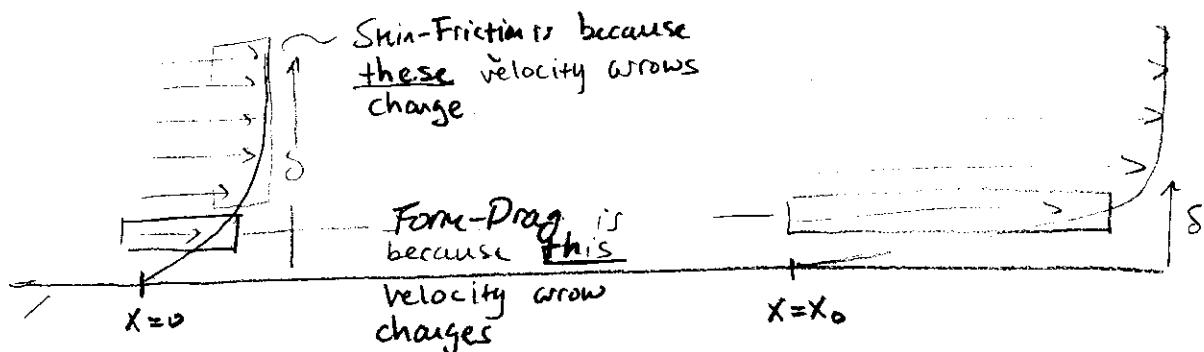 Skin-Friction is because
these velocity arrows
change
δ
Form-Drag is
because this
velocity arrow
changes
δ
X=0
X=X₀